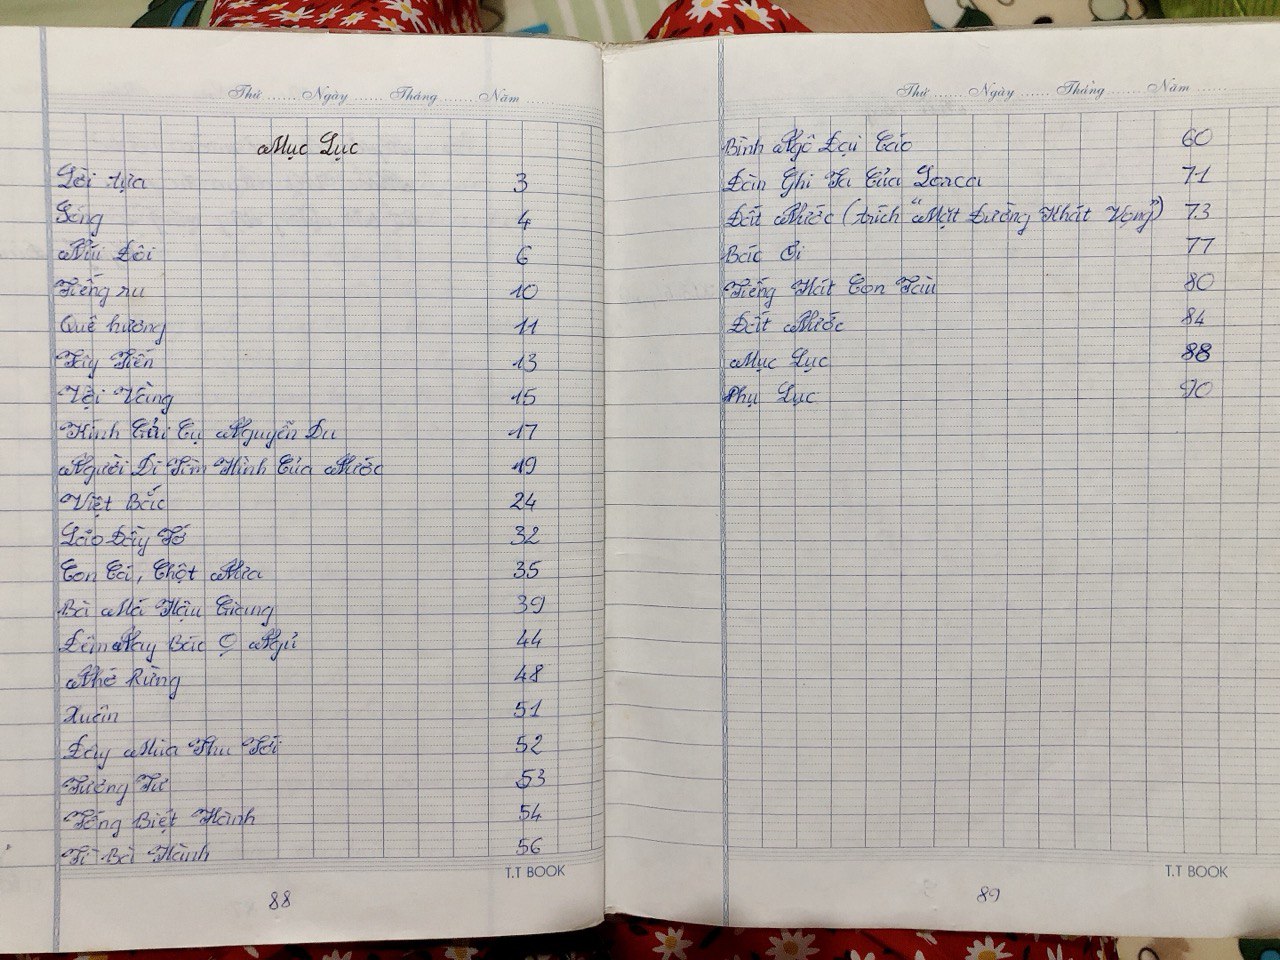 Thứ ...... Ngày ...... Tháng ...... Năm ......
Mục Lục
Lời tựa 3
Sóng 4
Núi Đôi 6
Tiếng ru 10
Quê hương 11
Tây Tiến 13
Vội Vàng 15
Kính Gửi Cụ Nguyễn Du 17
Người Đi Tìm Hình Của Nước 19
Việt Bắc 24
Lão Đầy Tớ 32
Con Cá, Chột Nưa 35
Bà Má Hậu Giang 39
Đêm Nay Bác Ọ Ngủ 44
Nhớ Rừng 48
Xuân 51
Đây Mùa Thu Tới 52
Tương Tư 53
Tống Biệt Hành 54
Tì Bà Hành 56
T.T BOOK
88
Thứ ...... Ngày ...... Tháng ...... Năm ......
Bình Ngô Đại Cáo 60
Đàn Ghi Ta Của Lorca 71
Đất Nước (trích "Mặt Đường Khát Vọng") 73
Bác Ơi 77
Tiếng Hát Con Tàu 80
Đất Nước 84
Mục Lục 88
Phụ Lục 90
T.T BOOK
89